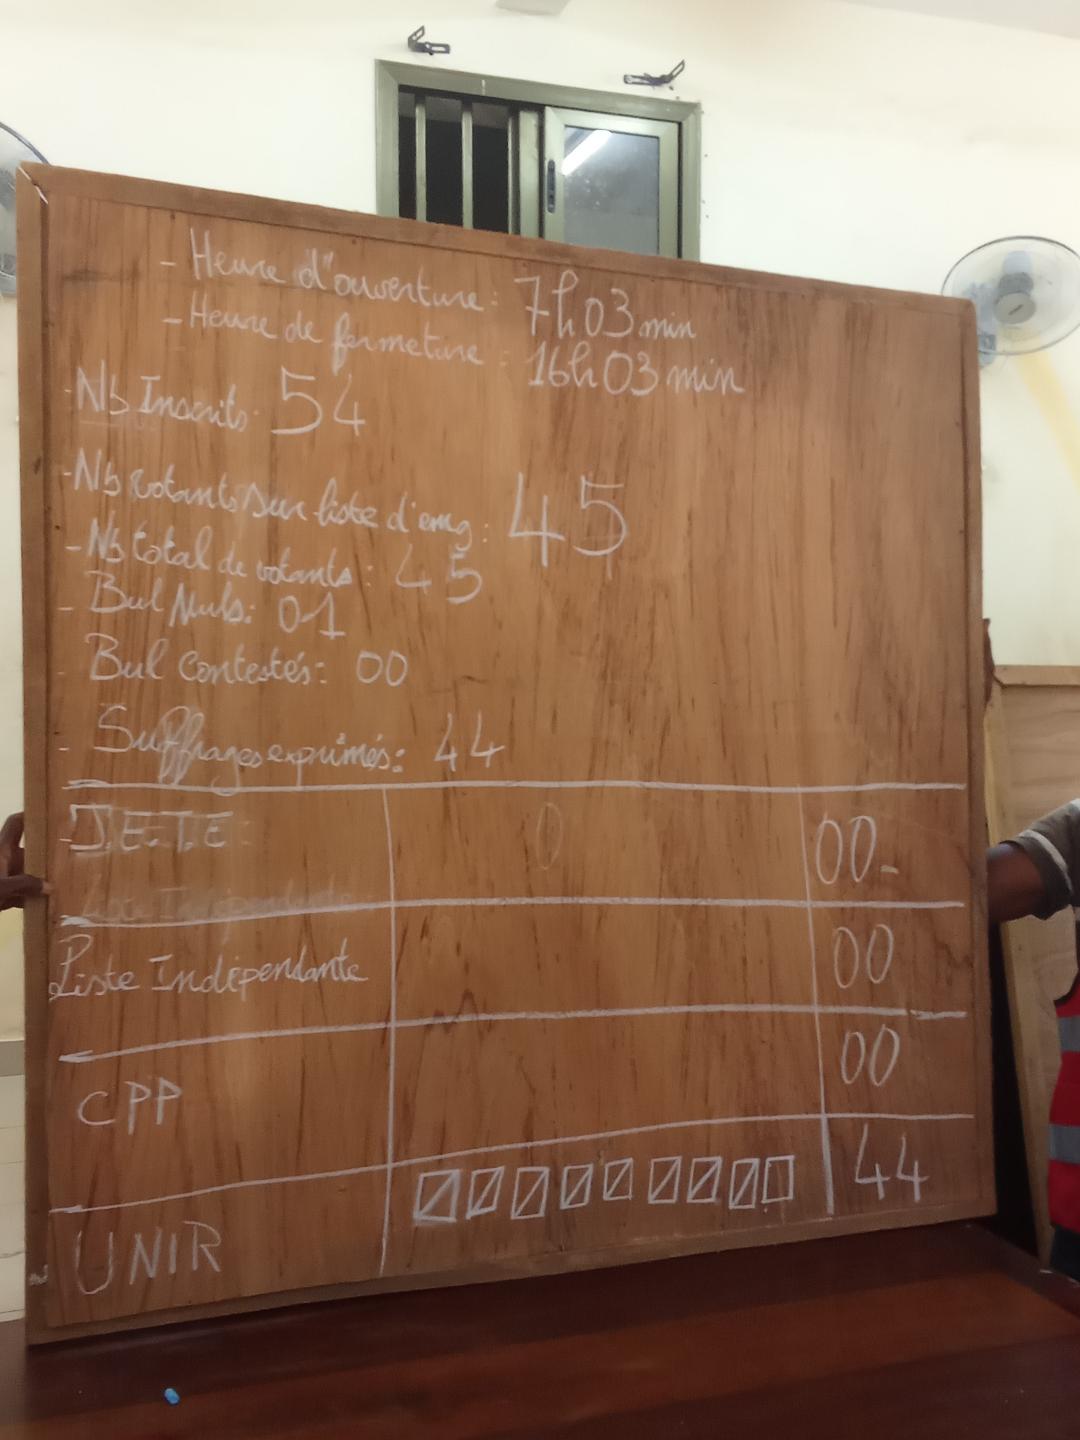 - Heure d'ouverture : 7h03 min
- Heure de fermeture : 16h03 min
- Nb Inscrits : 54
- Nb votants sur liste d'emg : 45
- Nb total de votants : 45
- Bul Nuls : 01
- Bul contestés : 00
- Suffrages exprimés : 44
0 00
Liste Indépendante
Liste Indépendante 00
CPP 00
UNIR 44